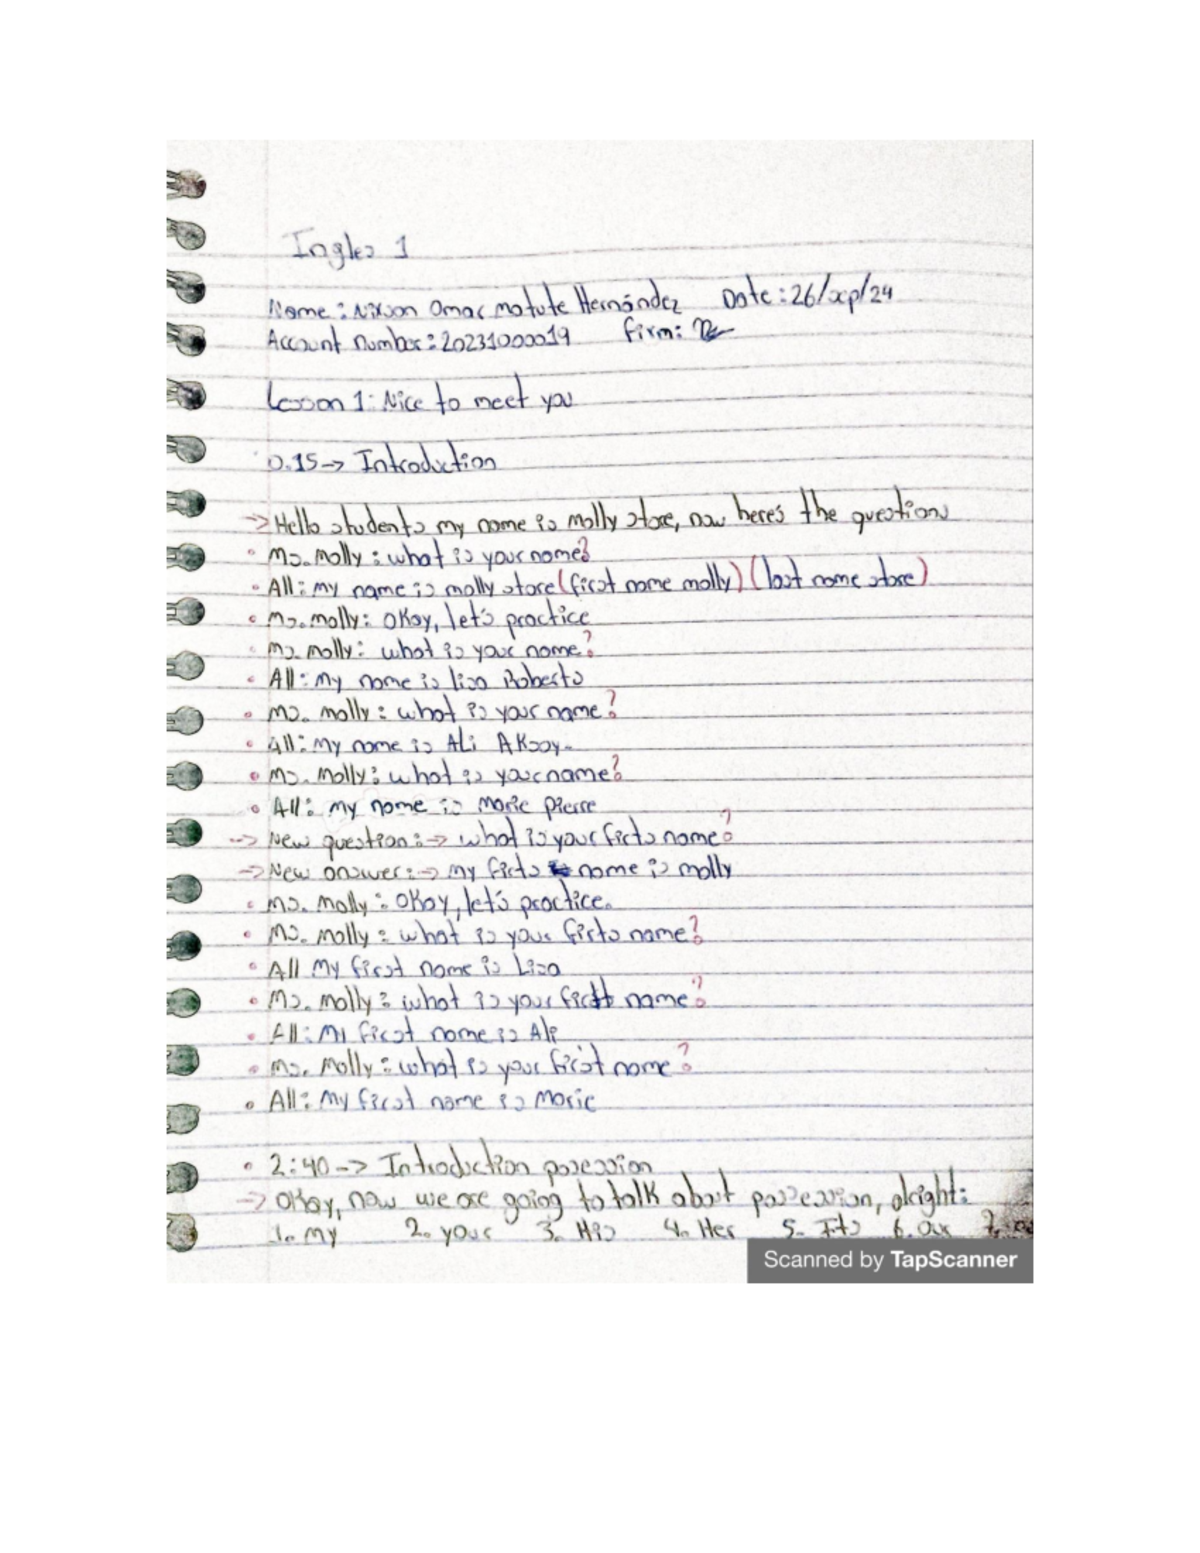 Ingles 1
Name: Nixson Omar Matute Hernández Date: 26/sep/24
Account number: 20231000019 firm:
Lesson 1: Nice to meet you
0.15-> Introduction
-> Hello students my name is molly store, now here's the questions
• Ms. Molly: what is your name?
• All: my name is molly store (first name molly) (last name store)
• Ms. molly: Okay, let's practice
• Ms. molly: what is your name?
• All: my name is lisa Roberts
• Ms. molly: what is your name?
• All: my name is Ali Aksoy.
• Ms. Molly: what is your name?
• All: my name is Marie Pierre
-> New question: -> what is your firts name?
-> New answer: -> my firts name is molly
• Ms. Molly: Okay, let's practice.
• Ms. Molly: what is your firts name?
• All My first name is Lisa
• Ms. Molly: what is your first name?
• All: My first name is Ali
• Ms. Molly: what is your first name?
• All: My first name is Marie
• 2:40-> Introduction posession
-> Okay, now we are going to talk about possession, alright:
1. My 2. your 3. His 4. Her 5. Its 6. Our 7.
Scanned by TapScanner